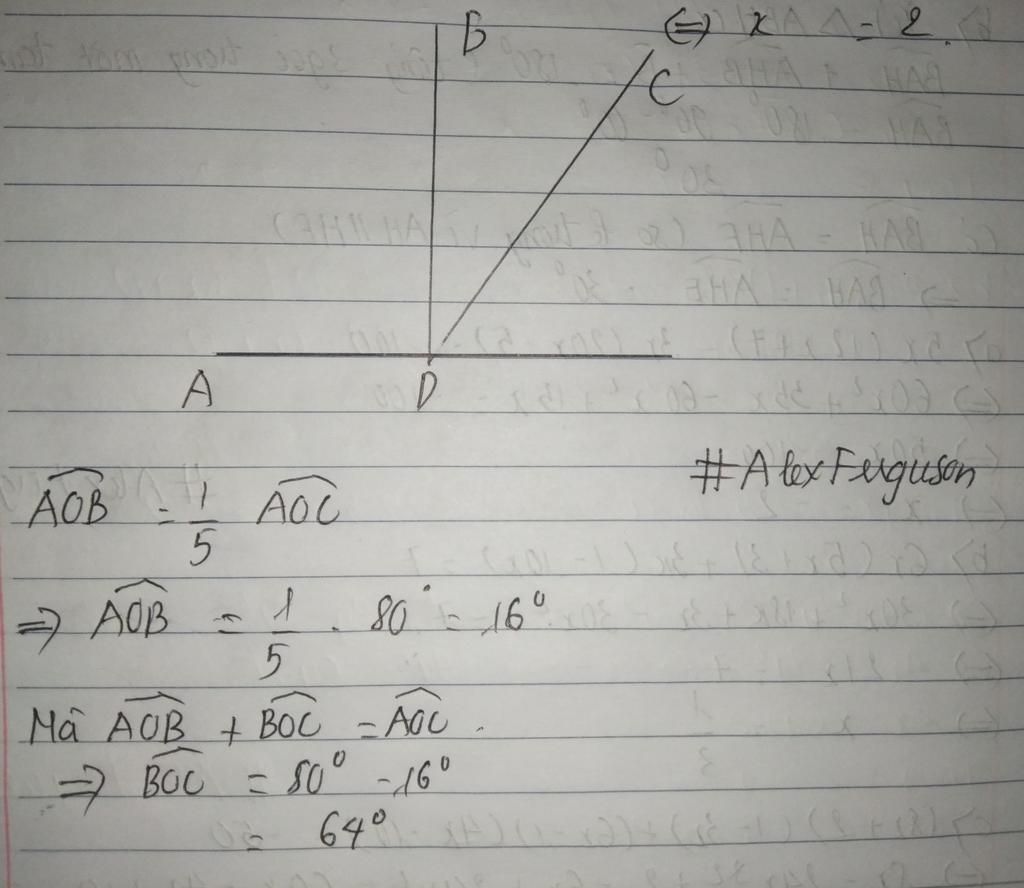 B
⇔ x = 2.
C
A D
#AlexFerguson
AOB = 1/5 AOC
⇒ AOB = 1/5 . 80° = 16°
Mà AOB + BOC = AOC.
⇒ BOC = 80° - 16°
= 64°